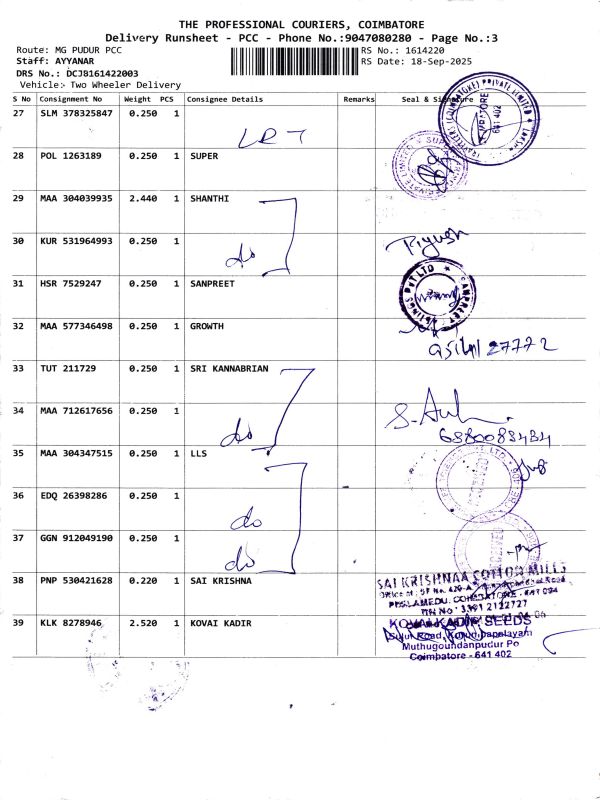 THE PROFESSIONAL COURIERS, COIMBATORE
Delivery Runsheet - PCC - Phone No.:9047080280 - Page No.:3
Route: MG PUDUR PCC RS No.: 1614220
Staff: AYYANAR RS Date: 18-Sep-2025
DRS No.: DCJ8161422003
Vehicle: Two Wheeler Delivery
S No Consignment No Weight PCS Consignee Details Remarks Seal & Signature
27 SLM 378325847 0.250 1
LRT
28 POL 1263189 0.250 1 SUPER
29 MAA 304039935 2.440 1 SHANTHI
30 KUR 531964993 0.250 1
do Piyush
31 HSR 7529247 0.250 1 SANPREET
32 MAA 577346498 0.250 1 GROWTH
33 TUT 211729 0.250 1 SRI KANNABRIAN
34 MAA 712617656 0.250 1
do
35 MAA 304347515 0.250 1 LLS
36 EDQ 26398286 0.250 1
do
37 GGN 912049190 0.250 1
do
38 PNP 530421628 0.220 1 SAI KRISHNA
SAI KRISHNAA COTTON MILLS
39 KLK 8278946 2.520 1 KOVAI KADIR
KOVAI KADIR SEEDS
Sulur Road,
Muthugoundanpudur Po
Coimbatore - 641 402